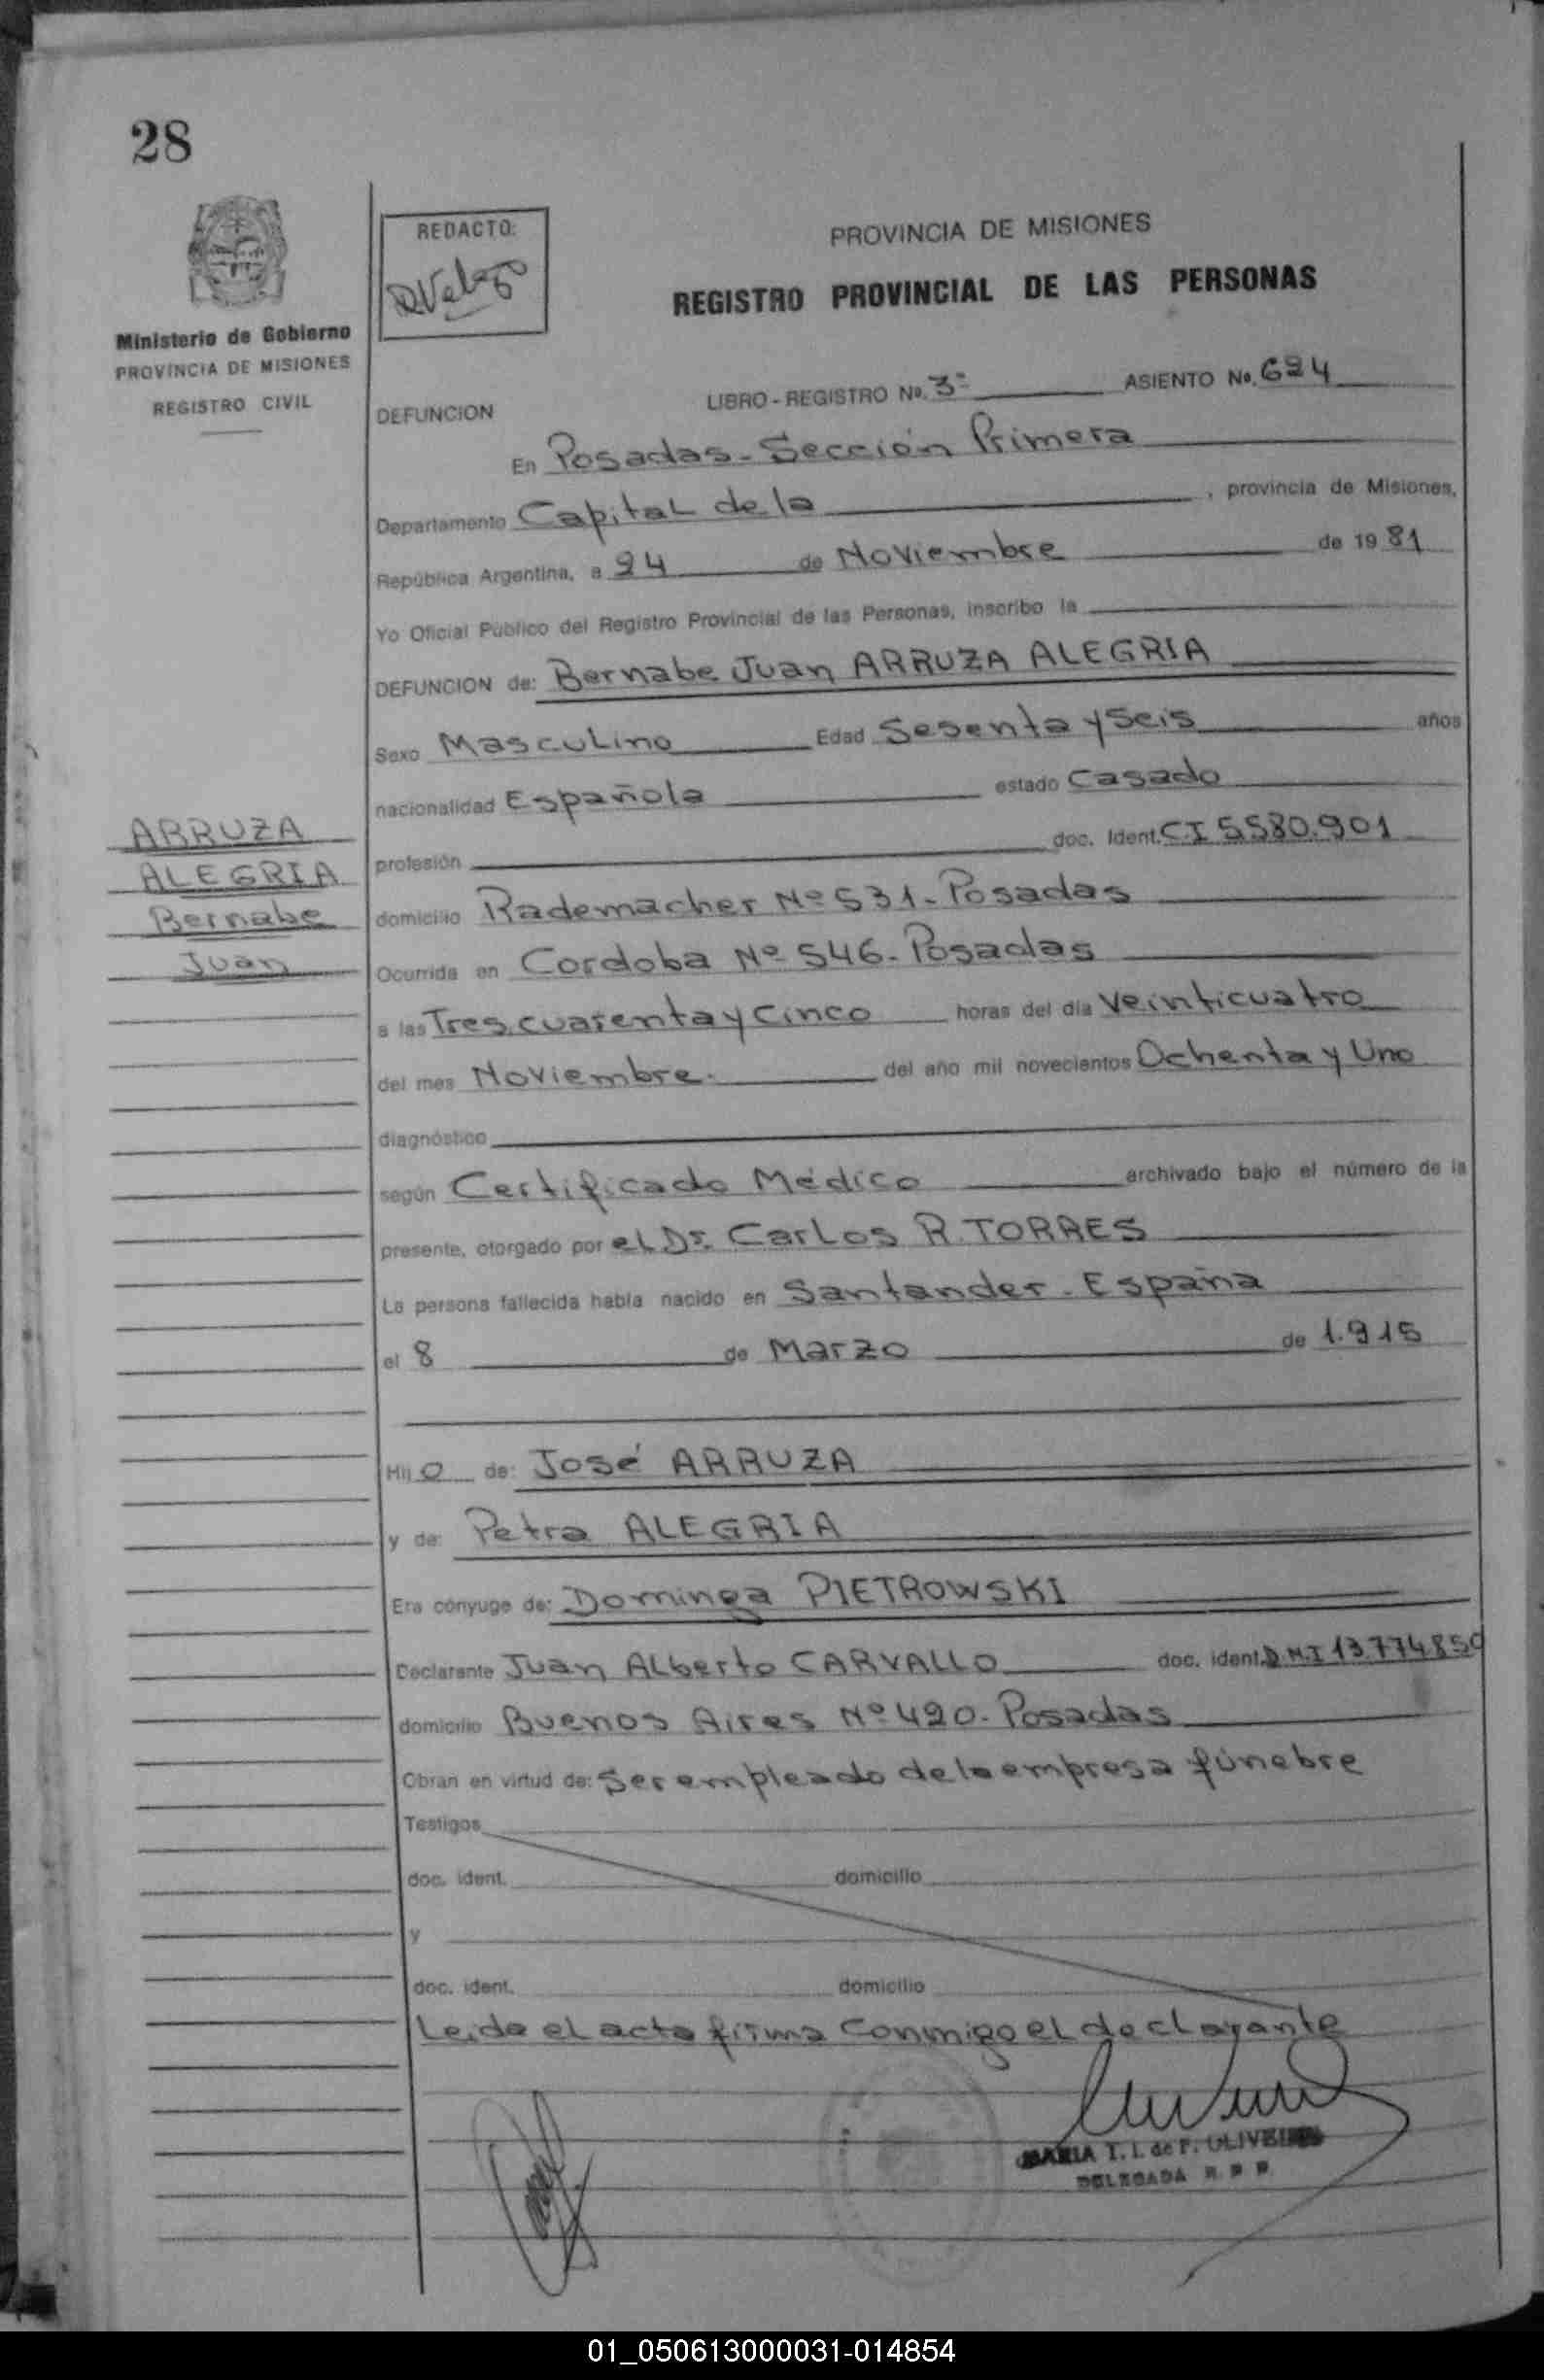 28
REDACTO:
PROVINCIA DE MISIONES
REGISTRO PROVINCIAL DE LAS PERSONAS
Ministerio de Gobierno
PROVINCIA DE MISIONES
REGISTRO CIVIL
DEFUNCION LIBRO - REGISTRO No. 3º ASIENTO No. 624
En Posadas - Sección Primera
Departamento Capital de la , provincia de Misiones,
República Argentina, a 24 de Noviembre de 1981
Yo Oficial Público del Registro Provincial de las Personas, inscribo la
DEFUNCION de: Bernabe Juan ARRUZA ALEGRIA
Sexo Masculino Edad Sesenta y Seis años
nacionalidad Española estado Casado
ARRUZA
ALEGRIA
Bernabe
Juan
profesión doc. Ident. C.I 5.580.901
domicilio Rademacher Nº 531 - Posadas
Ocurrida en Cordoba Nº 546 - Posadas
a las Tres cuarenta y Cinco horas del día Veinticuatro
del mes Noviembre. del año mil novecientos Ochenta y Uno
diagnóstico
según Certificado Médico archivado bajo el número de la
presente, otorgado por el Dr. Carlos R. TORRES
La persona fallecida había nacido en Santander - España
el 8 de Marzo de 1.915
Hijo de: José ARRUZA
y de: Petra ALEGRIA
Era cónyuge de: Dominga PIETROWSKI
Declarante Juan Alberto CARVALLO doc. ident. D.N.I 13.774.850
domicilio Buenos Aires Nº 420 - Posadas
Obran en virtud de: Ser empleado de la empresa fúnebre
Testigos
doc. ident. domicilio
y
doc. ident. domicilio
Leida el acta firma conmigo el declarante
MARIA T. I. de F. OLIVEIRA
DELEGADA R P P
01_050613000031-014854